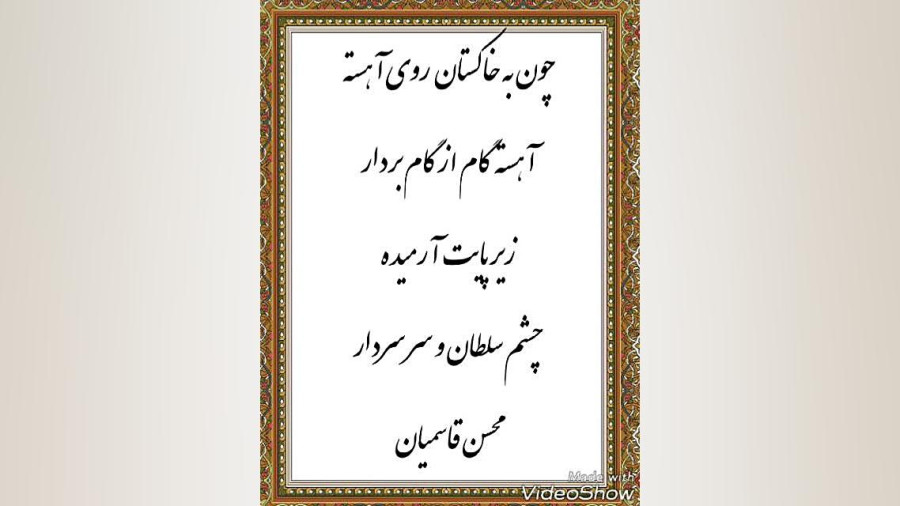 چون به خاکستان روی آهسته
آهسته گام از گام بردار
زیر پایت آرمیده
چشم سلطان و سر سردار
محسن قاسمیان
Made with
VideoShow